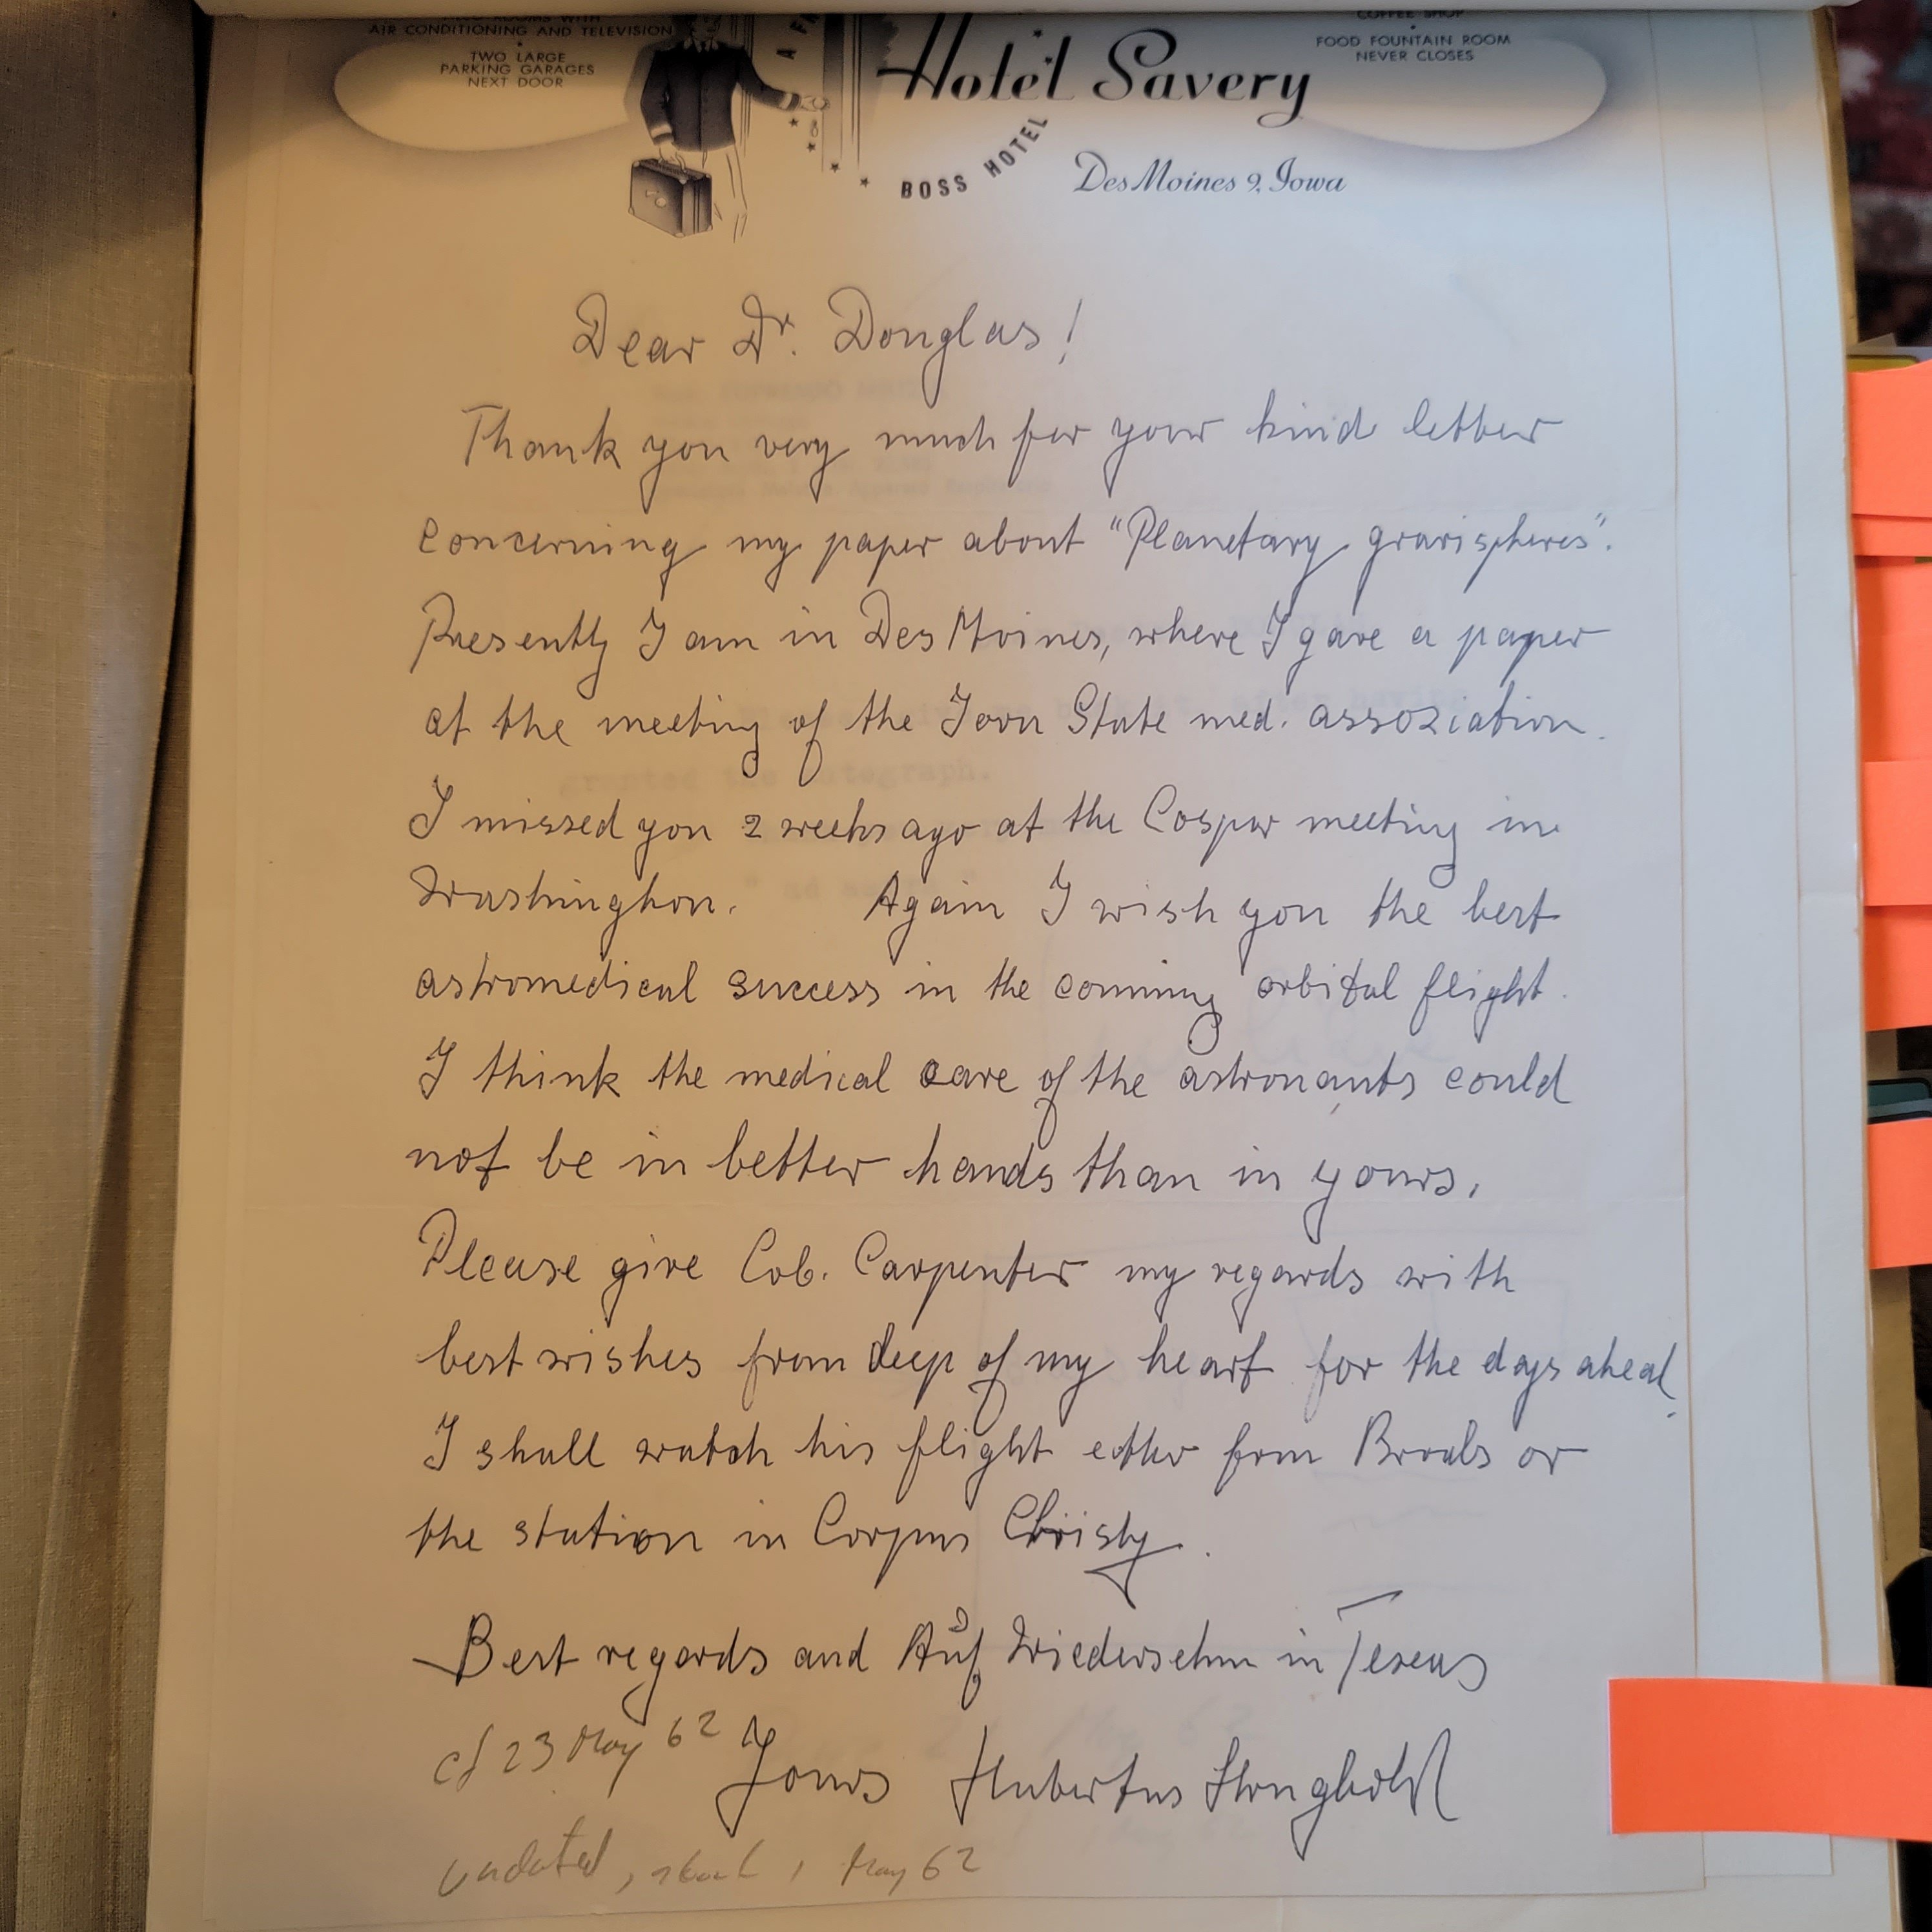 AIR CONDITIONING AND TELEVISION
TWO LARGE
PARKING GARAGES
NEXT DOOR
Hotel Savery
COFFEE SHOP
FOOD FOUNTAIN ROOM
NEVER CLOSES
BOSS HOTEL
Des Moines 9, Iowa
Dear Dr. Douglas!
Thank you very much for your kind letter
concerning my paper about "Planetary gravispheres".
Presently I am in Des Moines, where I gave a paper
at the meeting of the Iowa State med. assoziation.
I missed you 2 weeks ago at the Cospar meeting in
Washington. Again I wish you the best
astromedical success in the coming orbital flight.
I think the medical care of the astronauts could
not be in better hands than in yours.
Please give Col. Carpenter my regards with
best wishes from deep of my heart for the days ahead.
I shall watch his flight either from Brooks or
the station in Corpus Christy.
Best regards and Auf Wiedersehn in Texas
Yours Hubertus Strughold
cf 23 May 62
undated, about 1 May 62